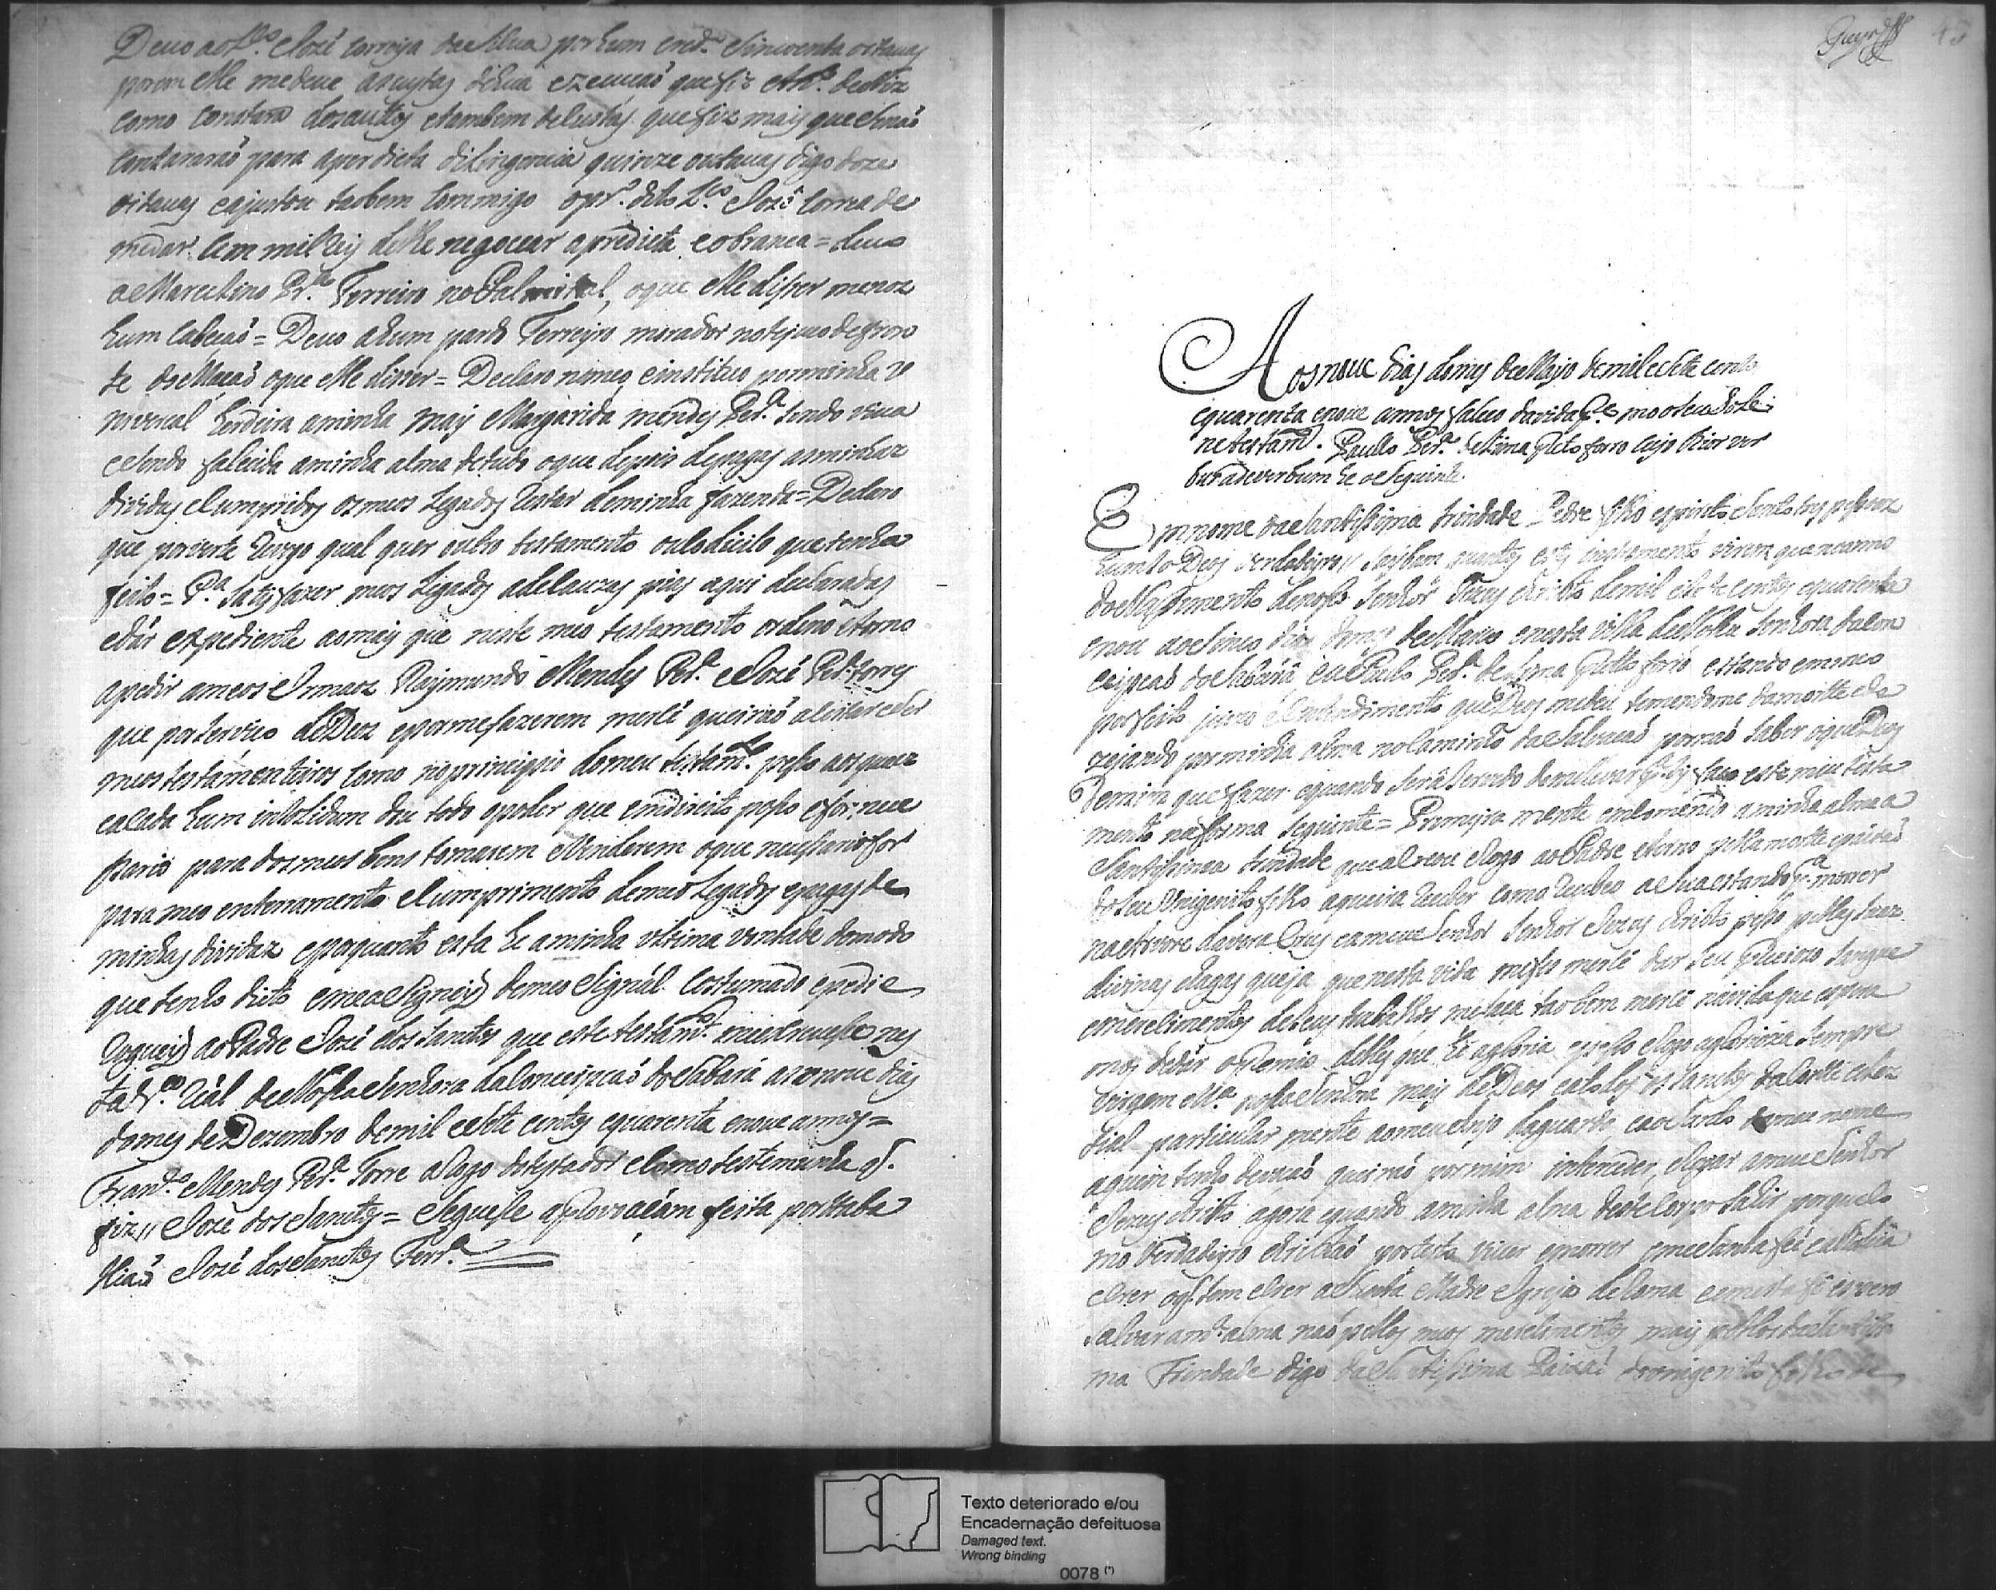 Devo ao L.do José Correya da Silva por hum cred.to sincoenta oitavas
porem elle me deve as custas de hua execucaõ que fiz
como constara dos auttos e tambem de custas que fiz mais que
para a perdicta diligencia quinze outavas digo doze
oitavas e ajustou tãobem commigo o pr.o dito L.do José Correa de
me dar cem mil reis de lhe negocear a predicta cobranca = devo
a Marcelino Pr.a Ferreiro no Palmital, o que elle disser menos
hum cabecaõ = Devo a hum pardo Ferreyro morador no de fron
te do o que elle disser = Declaro nomeo e instituo por minha u
niverçal herdeira a minha may Margarida Mendes Per.a sendo viva
e sendo falecida a minha alma de tudo o que depois de pagas as minhas
dividas e cumpridos os meos legados restar de minha fazenda = Declaro
que por este revogo qual quer outro testamento ou codicilo que tenha
feito = P.a satisfazer meos legados e de cauzas pias aqui declaradas
e dár expediente ao mais que neste meo testamento ordeno e torno
a pedir a meos Irmaos Raymundo Mendes Per.a e José Per.a torres
que por serviço de Deos e por me fazerem mercê queiraõ aceitar e ser
meos testamenteiros como no principio do meu testam.to pesso aos quaes
e a cada hum insolidum dou todo o poder que em direito posso e for nece
sario para dos meus bens tomarem e venderem o que necessario for
para meo enterramento e cumprimento de meos legados e paga de
minhas dividas e porquanto esta he a minha ultima vontade do modo
que tenho dicto me asigney de meo signál costumado e pedi e
roguey ao Padre José dos Santos que este testam.to me escrevesse nes
ta V.a Reál de Nossa Senhora da Conceipcaõ do Sabará aos nove dias
do mes de Dezembro de mil e sette centos e quarenta e nove annos =
Fran.co Mendes Per.a Torre a Rogo do testador e como testemunha q.
fiz // José dos Santos = e seguesse aprovaçám feita por taba
liaõ José dos Santos Ferr.a
Aos nove dias do mes de Mayo de mil e sete centos
e quarenta e nove annos faleceo da vida com o seu sole
ne testam.to Paullo Per.a de Lima Preto forro cujo theor ver
bum ad verbum he o seguinte
Em nome da Santissima trindade Padre filho espirito Santo tres pessoas
hum so Deos verdadeyro // Saibam quantos este instrumento virem que no anno
do Nascimento de nosso Senhor Jezus Christo de mil e sete centos e quarenta
e nove aos sinco dias do mes de Março e nesta villa de Nossa Senhora da Con
ceipcaõ do Sabará eu Paulo Per.a de Lima Preto forro estando em meo
perfeito juizo e entendimento que Deos me deu temendome da morte e de
zejando por minha alma no caminho da Salvacaõ por naõ saber o que Deos
de mim quer fazer e quando será servido de me levar p.a sy faço este meu testa
mento na forma seguinte = Primeyra mente encomendo a minha alma a
Santissima trindade que a creou e Rogo ao Padre eterno pella morte e paixaõ
do seu Unigenito filho a queira receber como recebeo a sua estando p.a morrer
na arvore da vera Crus e a meu Senhor Jezus Christo pesso pellas suas
divinas chagas que ja que nesta vida me fes mercê dar seu precioso sangue
e merecimentos de seus trabalhos me faca taõbem mercê na vida que espera
mos de dár o premio delles que hé a gloria e pesso e Rogo a glorioza sempre
virgem M.a nossa Senhora may de Deos e a todos os Santos da Corte celes
tial particular mente ao meu Anjo da guarda e ao Santo de meu nome
a quem tenho devocaõ queiraõ por mim interceder, e Rogar a meu Senhor
Jezus Christo agora e quando a minha alma deste corpo sahir porque co
mo verdadeyro christaõ protesto viver e morrer em a Santa fé catholica
e crer o q. tem e crer a Santa Madre Igreja de Roma e em esta fé espero
salvar a m.a alma naõ pellos meos merecimentos mais pellos da Santissi
ma Trindade digo da Santissima Paixaõ do unigenito filho de
Texto deteriorado e/ou
Encadernação defeituosa
Damaged text.
Wrong binding
0078 (*)